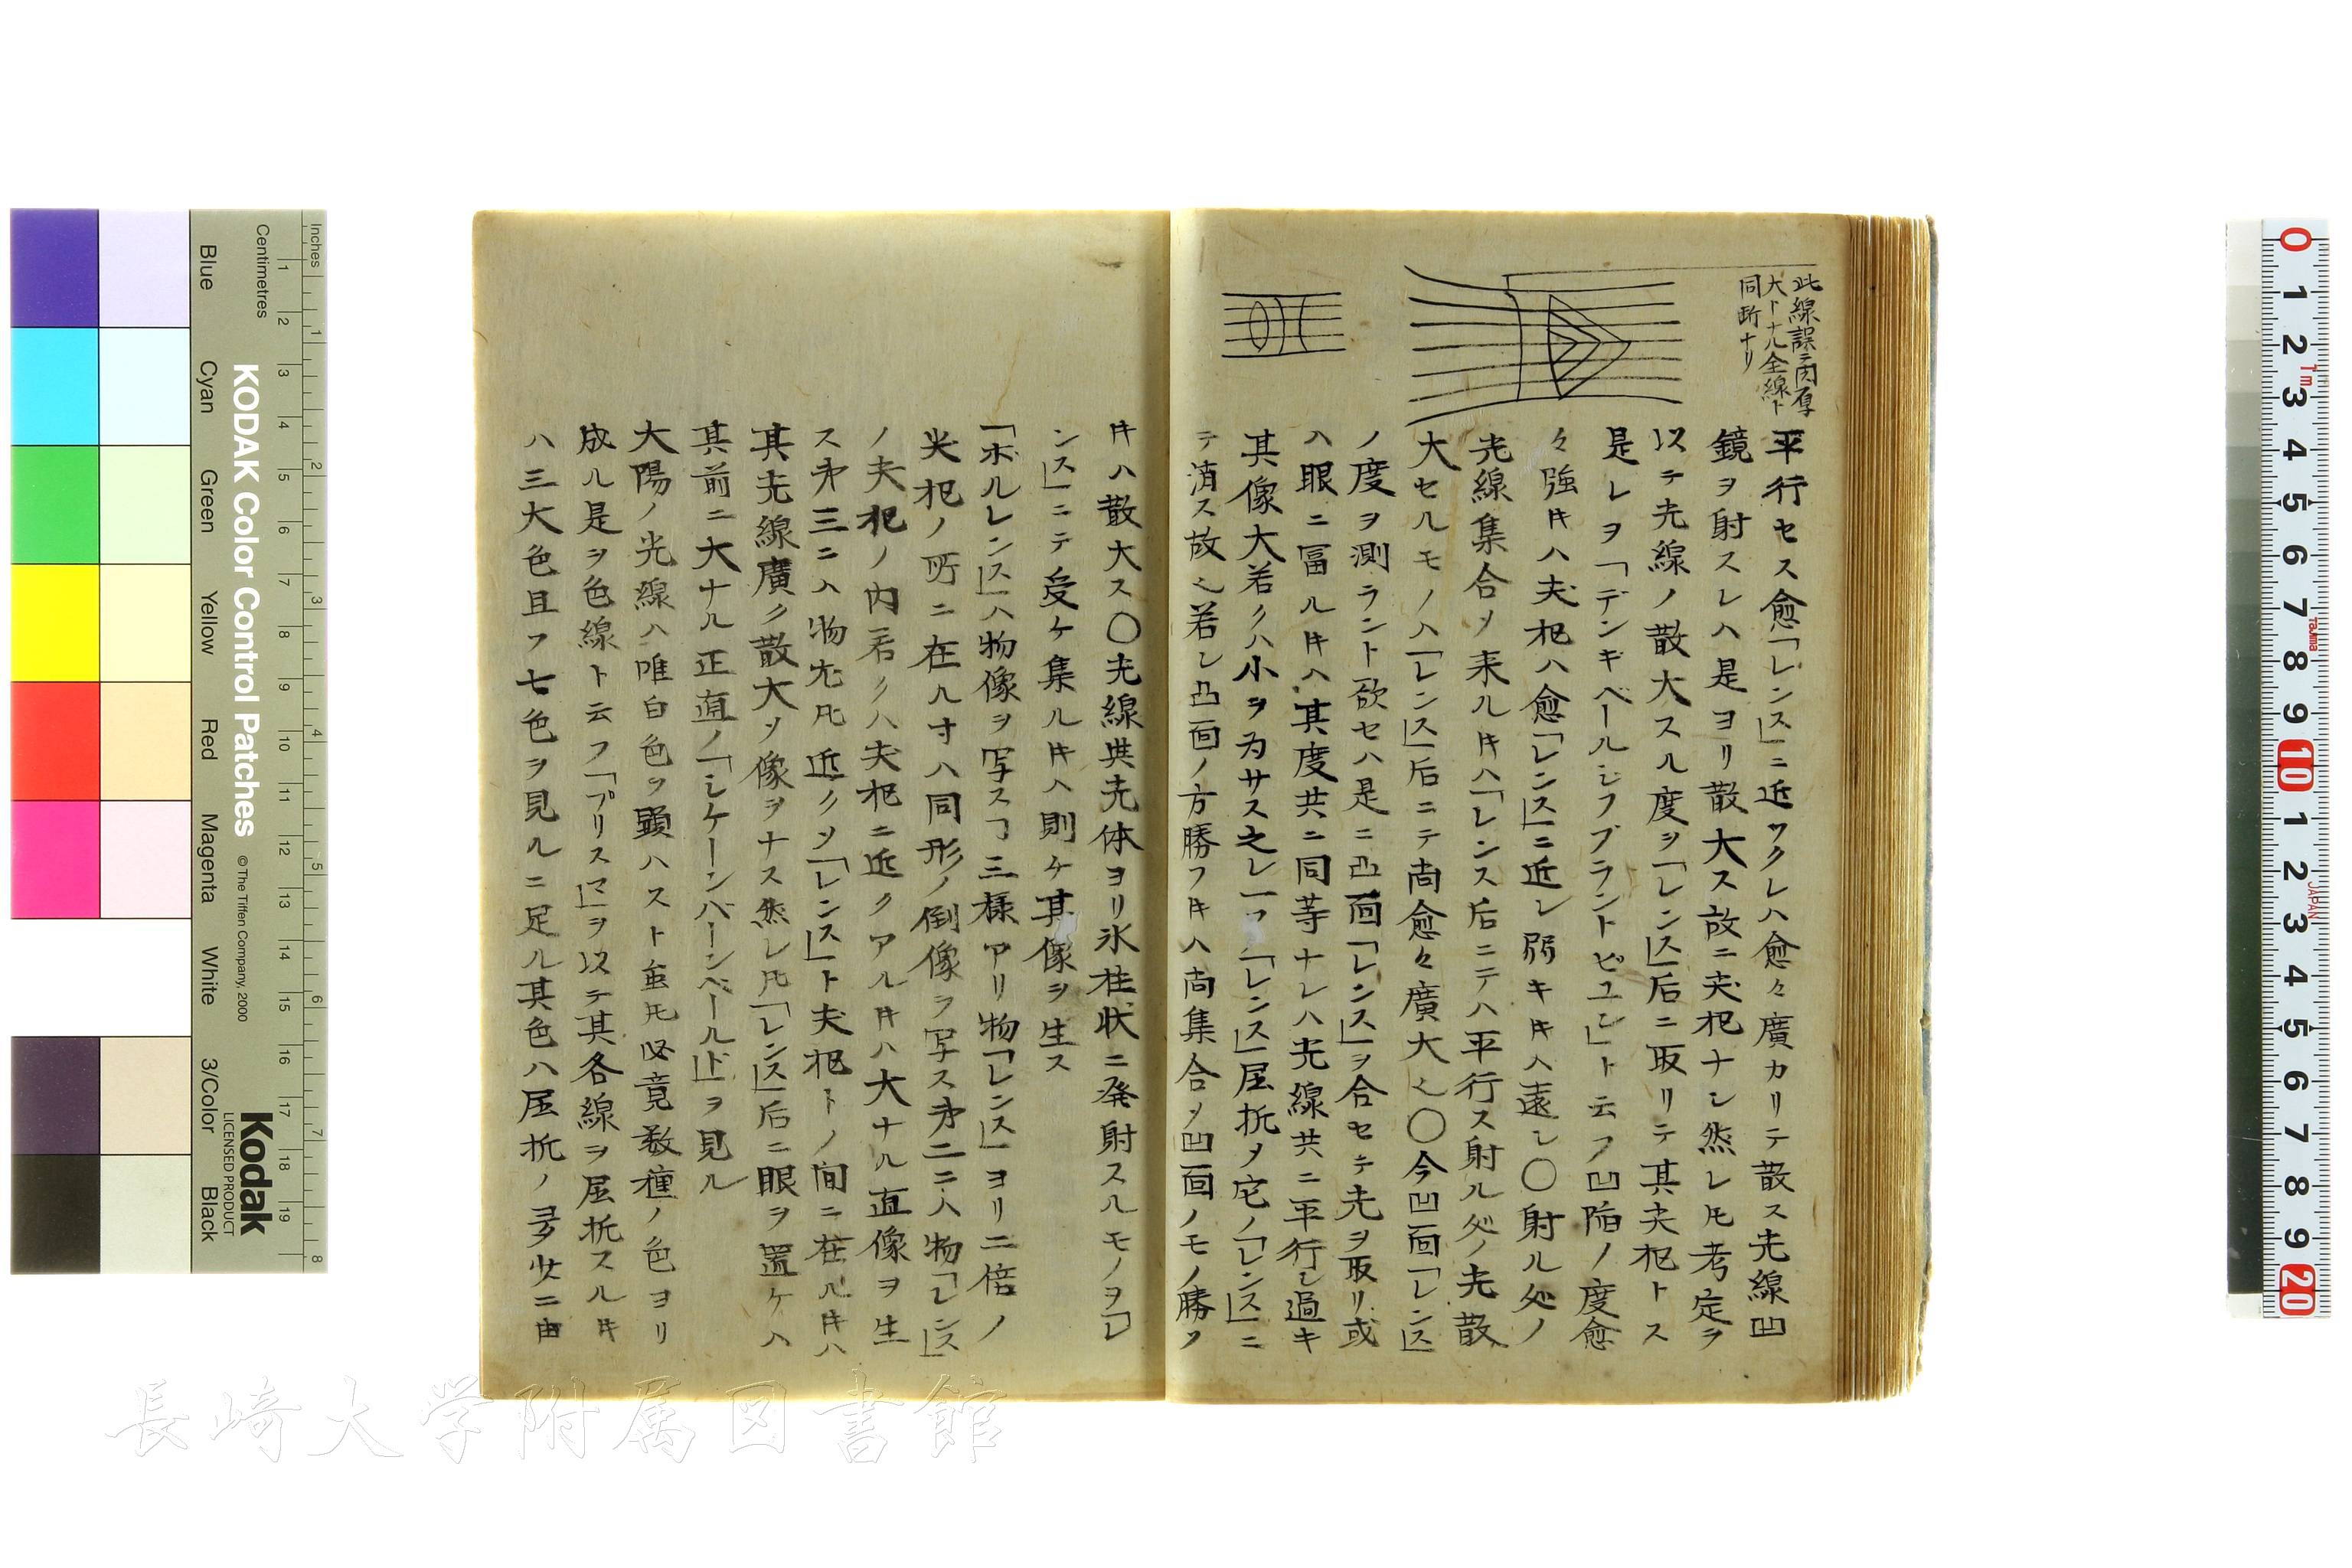 此線誤テ肉厚
大トナル全線ト
同断ナリ
平行セス愈「レンス」ニ近ツクレハ愈々廣カリテ散ス光線凹
鏡ヲ射スレハ是ヨリ散大ス故ニ夫犯ナシ然レ𪜈考定ヲ
以テ光線ノ散大スル度ヲ「レンス」后ニ取リテ其夫犯トス
是レヲ「デンギベールジフブラントピュン」ト云フ凹陷ノ度愈
々強キハ夫犯ハ愈「レンス」ニ近シ弱キキハ遠シ〇射ル処ノ
光線集合ソ来ルキハ「レンス后ニテハ平行ス射ル処ノ光散
大セルモノハ「レンス」后ニテ尚愈々廣大也〇今凹面「レンス」
ノ度ヲ測ラント欲セハ是ニ凸面「レンス」ヲ合セテ光ヲ取リ或
ハ眼ニ冨ルキハ其度共ニ同等ナレハ光線共ニ平行シ過キ
其像大若クハ小ヲ为サス之レ一ツノ「レンス」屈折ヲ宅ノ「レンス」ニ
テ消ス故也若シ凸面ノ方勝フキハ尚集合ソ凹面ノモノ勝フ
キハ散大ス〇光線共光体ヨリ氷柱状ニ発射スルモノヲ「レ
ンス」ニテ受ケ集ルキハ則ケ其像ヲ生ス
「ボルレンス」ハ物像ヲ写スヿ三様アリ物「レンス」ヨリ二倍ノ
夾犯ノ所ニ在ル寸ハ同形ノ倒像ヲ写ス第二ニハ物「レンス
ノ夫犯ノ内若クハ夫犯ニ近クアルキハ大ナル直像ヲ生
ス第三ニハ物光𪜈近クソ「レンス」ト夫犯トノ间ニ在ルキハ
其光線廣ク散大ソ像ヲナス然レ𪜈「レンス」后ニ眼ヲ置ケハ
其前ニ大ナル正直ノ「シケーンバーンベールド」ヲ見ル
大陽ノ光線ハ唯白色ヲ顕ハスト虽𪜈畢竟数種ノ色ヨリ
成ル是ヲ色線ト云フ「プリスマ」ヲ以テ其各線ヲ屈折スルキ
ハ三大色且フ七色ヲ見ルニ足ル其色ハ屈折ノ多少ニ由
KODAK Color Control Patches
© The Tiffen Company, 2000
Kodak
LICENSED PRODUCT
Inches
Centimetres
Blue
Cyan
Green
Yellow
Red
Magenta
White
3/Color
Black
JAPAN
長崎大学附属図書館